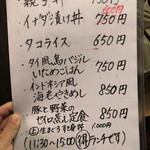 親子丼 750円
イナダ漬け丼 750円
タコライス 650円
タイ風鳥バジル
いためごはん 750円
インドネシア風
海老やきめし 850円
豚と野菜の
せいろ蒸し定食 850円
生まぐろすき身丼 1,000円
(11:30〜15:00 得ランチです)